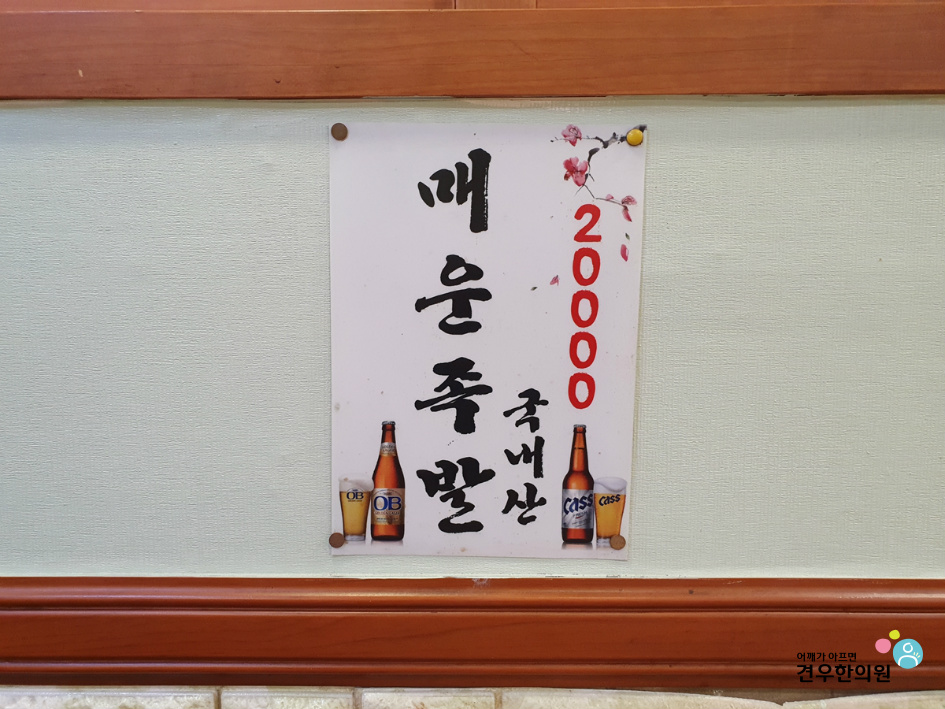 매운족발
국내산
20000
OB
OB
Cass
Cass
어깨가 아프면
견우한의원